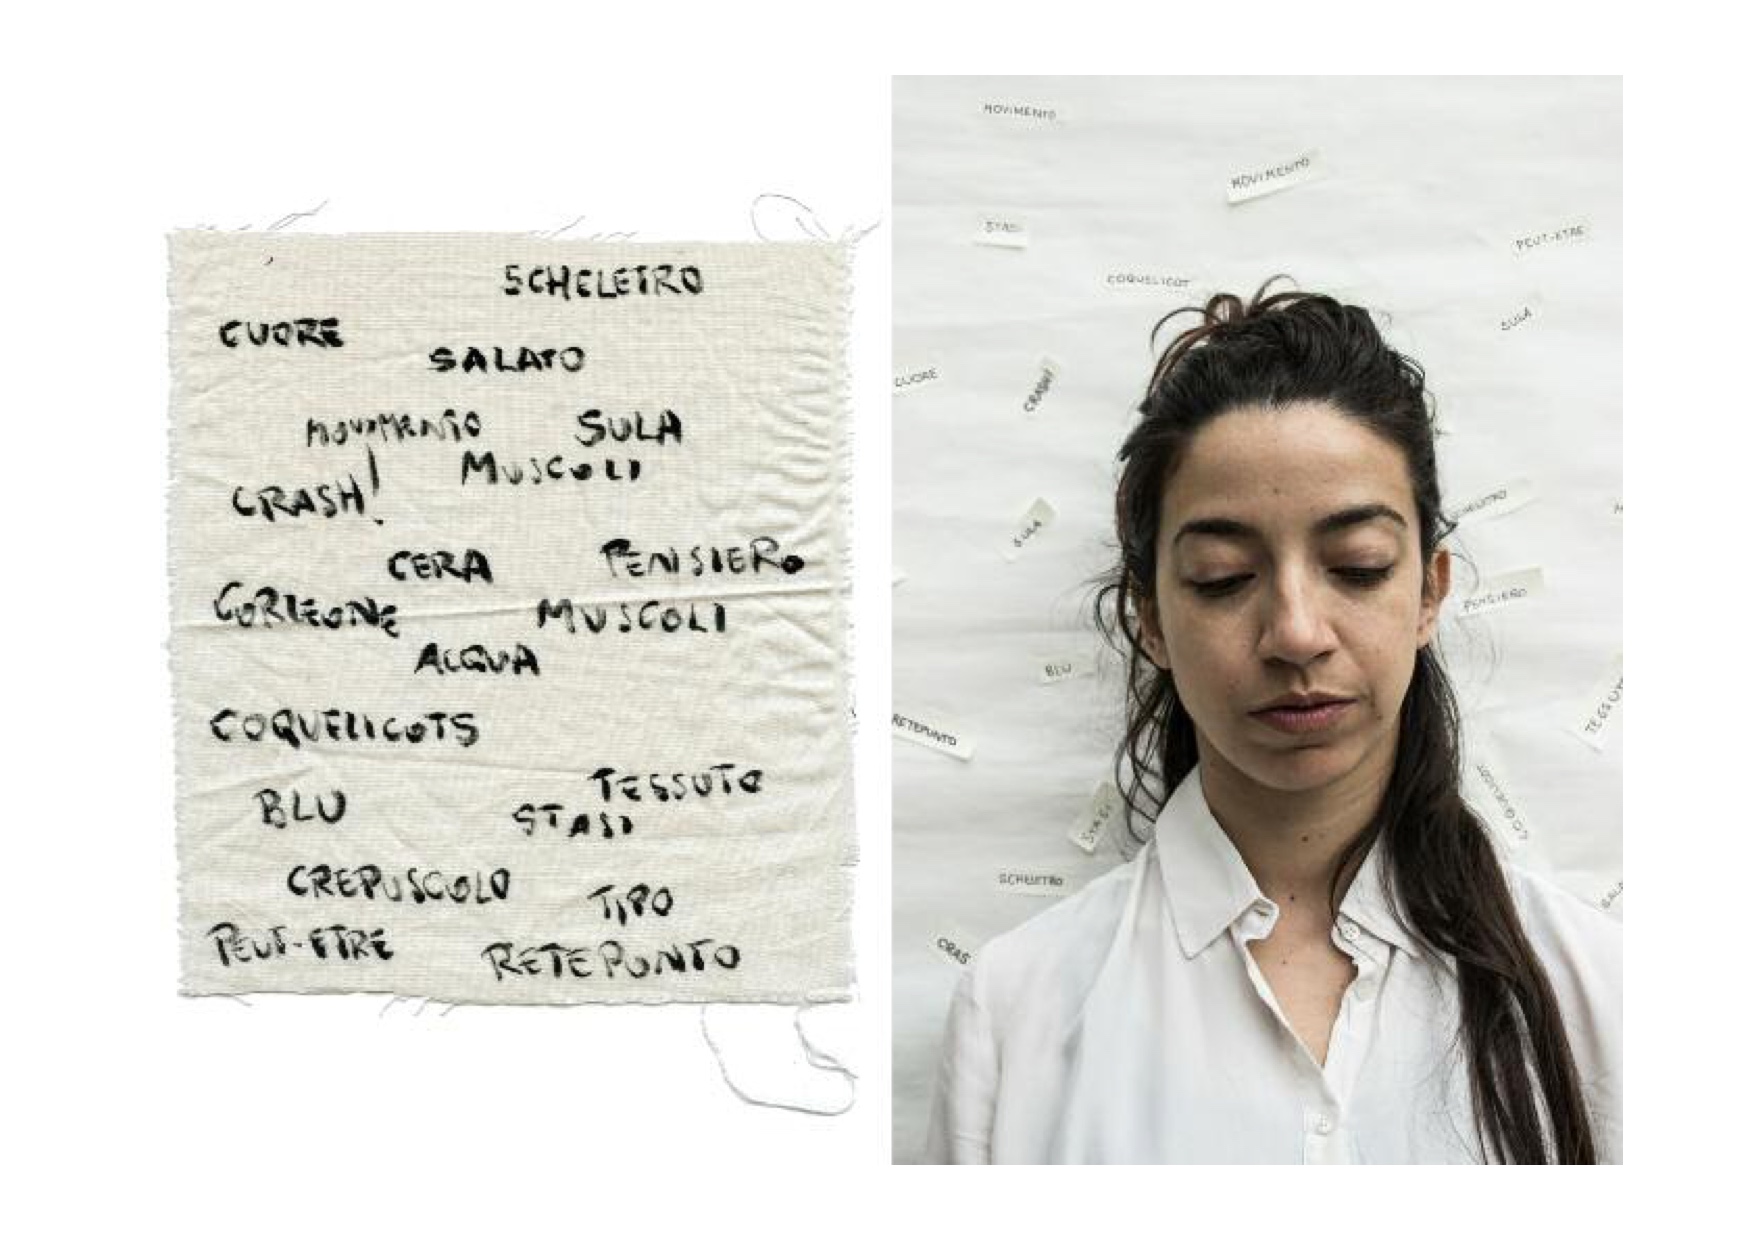 SCHELETRO
CUORE
SALATO
MOVIMENTO SULA
MUSCOLI
CRASH!
CERA PENSIERO
CORLEONE MUSCOLI
ACQUA
COQUELICOTS
TESSUTO
BLU STASI
CREPUSCOLO TIPO
PEUT-ETRE RETEPUNTO
MOVIMENTO
MOVIMENTO
STASI
PEUT-ETRE
COQUELICOT
SULA
CUORE
CRASH!
SCHELETRO
SULA
PENSIERO
BLU
TESSUT
RETEPUNTO
STASI
COQUELICOT
SCHELETRO
CRAS